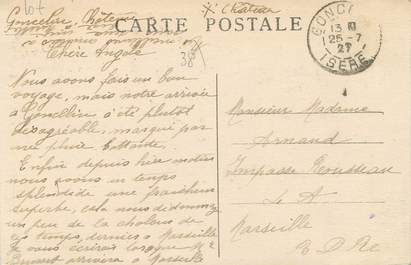 Goncelin, Château
* Château
CARTE POSTALE
Chère Angèle
Nous avons fait un bon
voyage, mais notre arrivée
à Goncelin a été plutôt
désagréable, marqué par
une pluie battante.
Enfin depuis hier matin
nous avons un temps
splendide une fraîcheur
superbe, cela nous dédommage
un peu de la chaleur de
ces temps derniers à Marseille
Je vous écrirai lorsque Mr
arrivera à Marseille
GONCELIN
13 H
25 - 7
27
ISERE
Monsieur Madame
Arnaud
Impasse Rousseau
Marseille